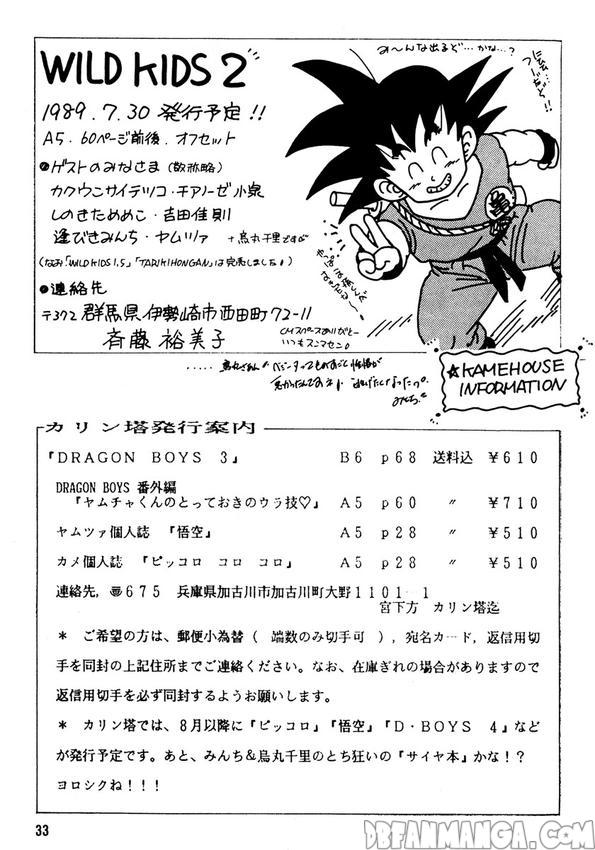 WILD KIDS 2
1989.7.30 発行予定!!
A5.60ページ前後.オフセット
●ゲストのみなさま(敬称略)
カクウニサイテツコ・チアノーゼ小泉
しのきためめこ・吉田佳則
逢びきみんち・ヤムツァ +烏丸千里ですび
(なお「WILD KIDS 1.5」「TARIKIHONGAN」は完売しました!)
●連絡先
〒372 群馬県伊勢崎市西田町72-11
斉藤裕美子
み〜んな出るど…かな…?
CMスペースありがとー
いつもスンマセン。
☆KAMEHOUSE
INFORMATION
カリン塔発行案内
『DRAGON BOYS 3』 B6 p68 送料込 ¥610
DRAGON BOYS 番外編
『ヤムチャくんのとっておきのウラ技♡』 A5 p60 〃 ¥710
ヤムツァ個人誌 『悟空』 A5 p28 〃 ¥510
カメ個人誌 『ピッコロ コロ コロ』 A5 p28 〃 ¥510
連絡先,〠675 兵庫県加古川市加古川町大野1101-1
宮下方 カリン塔迄
* ご希望の方は、郵便小為替( 端数のみ切手可 ),宛名カード,返信用切
手を同封の上記住所までご連絡ください。なお、在庫ぎれの場合がありますので
返信用切手を必ず同封するようお願いします。
* カリン塔では、8月以降に『ピッコロ』『悟空』『D・BOYS 4』など
が発行予定です。あと、みんち&烏丸千里のとち狂いの『サイヤ本』かな!?
ヨロシクね!!!
33
DBFANMANGA.COM